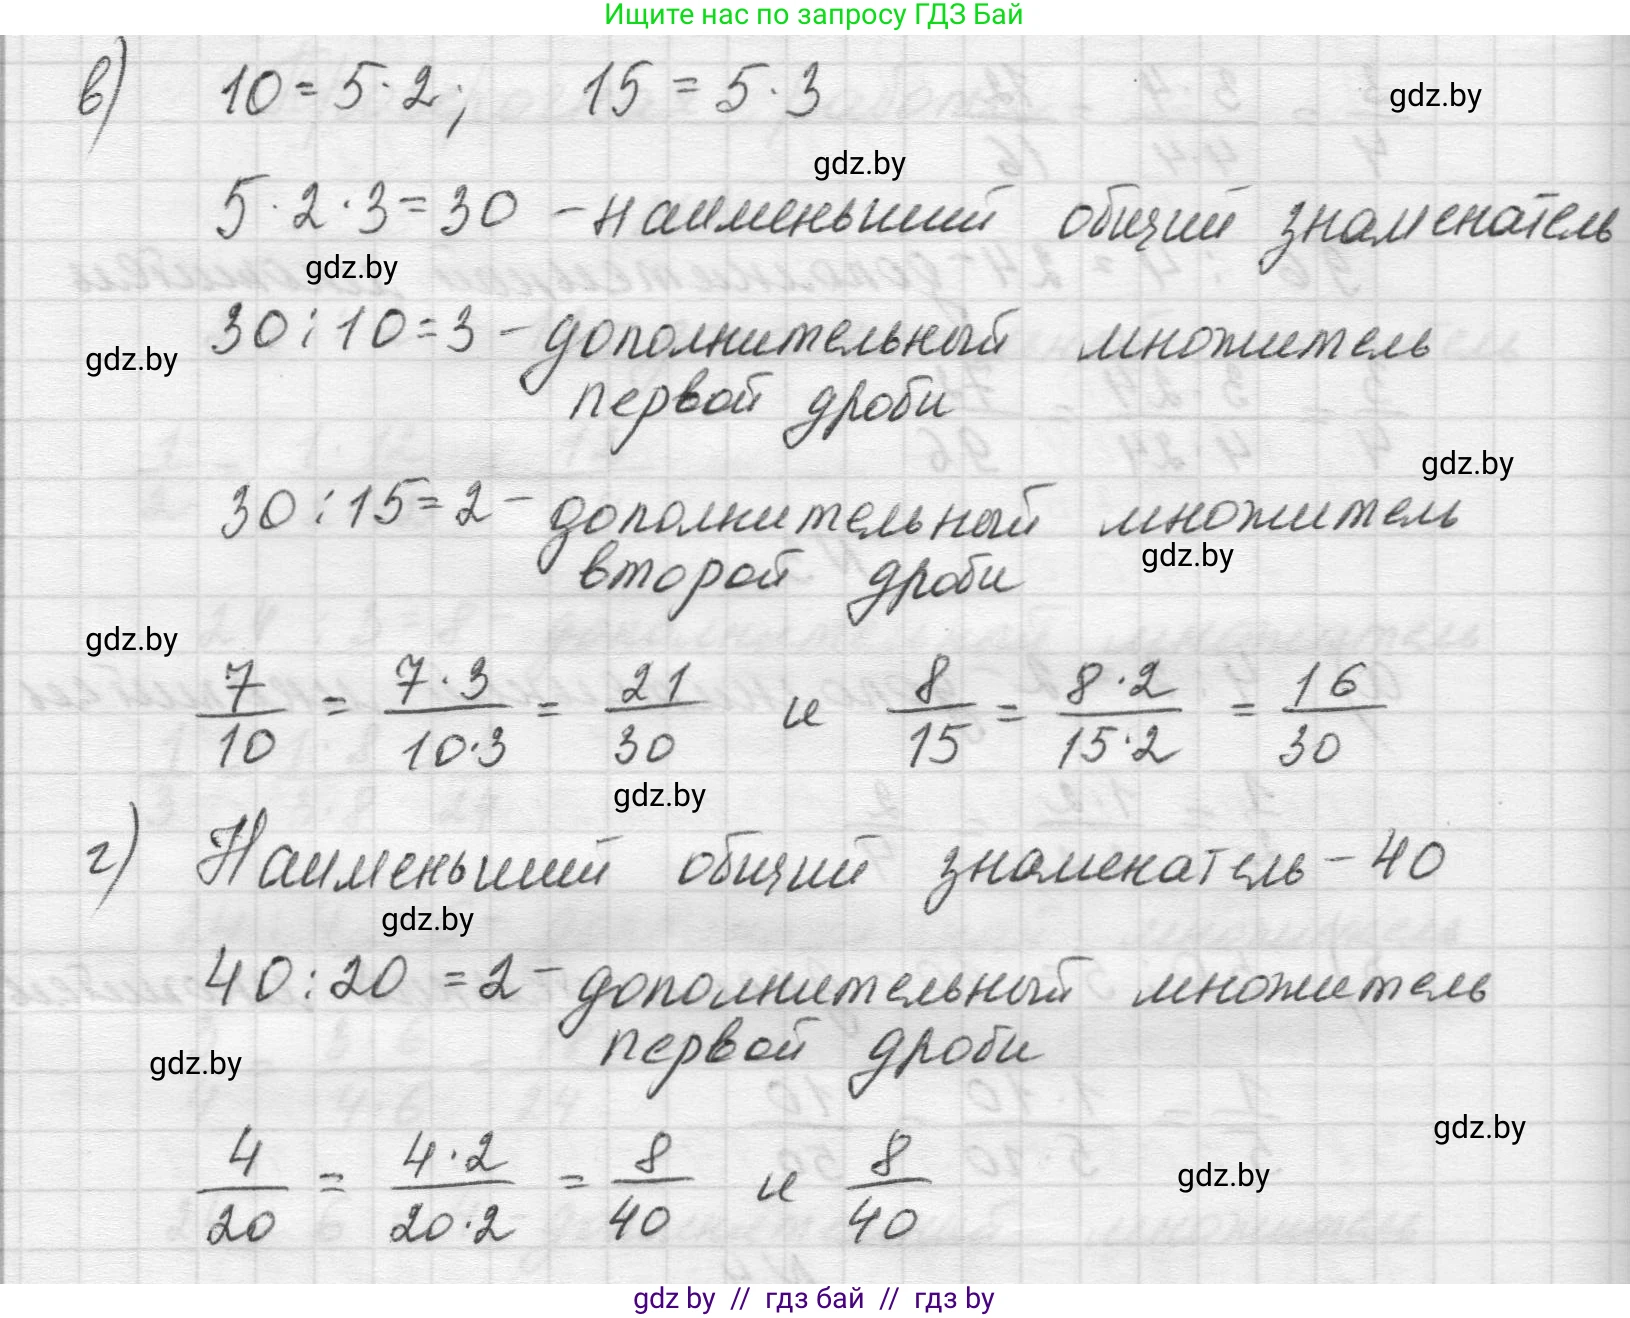 Ищите нас по запросу ГДЗ Бай
в) 10 = 5 · 2; 15 = 5 · 3
gdz.by
gdz.by
5 · 2 · 3 = 30 – наименьший общий знаменатель
gdz.by
30 : 10 = 3 – дополнительный множитель
gdz.by
первой дроби
gdz.by
30 : 15 = 2 – дополнительный множитель
gdz.by
второй дроби
gdz.by
7/10 = 7·3/10·3 = 21/30 и 8/15 = 8·2/15·2 = 16/30
gdz.by
г) Наименьший общий знаменатель – 40
gdz.by
40 : 20 = 2 – дополнительный множитель
первой дроби
gdz.by
gdz.by
4/20 = 4·2/20·2 = 8/40 и 8/40
gdz.by
gdz by // гдз бай // гдз by